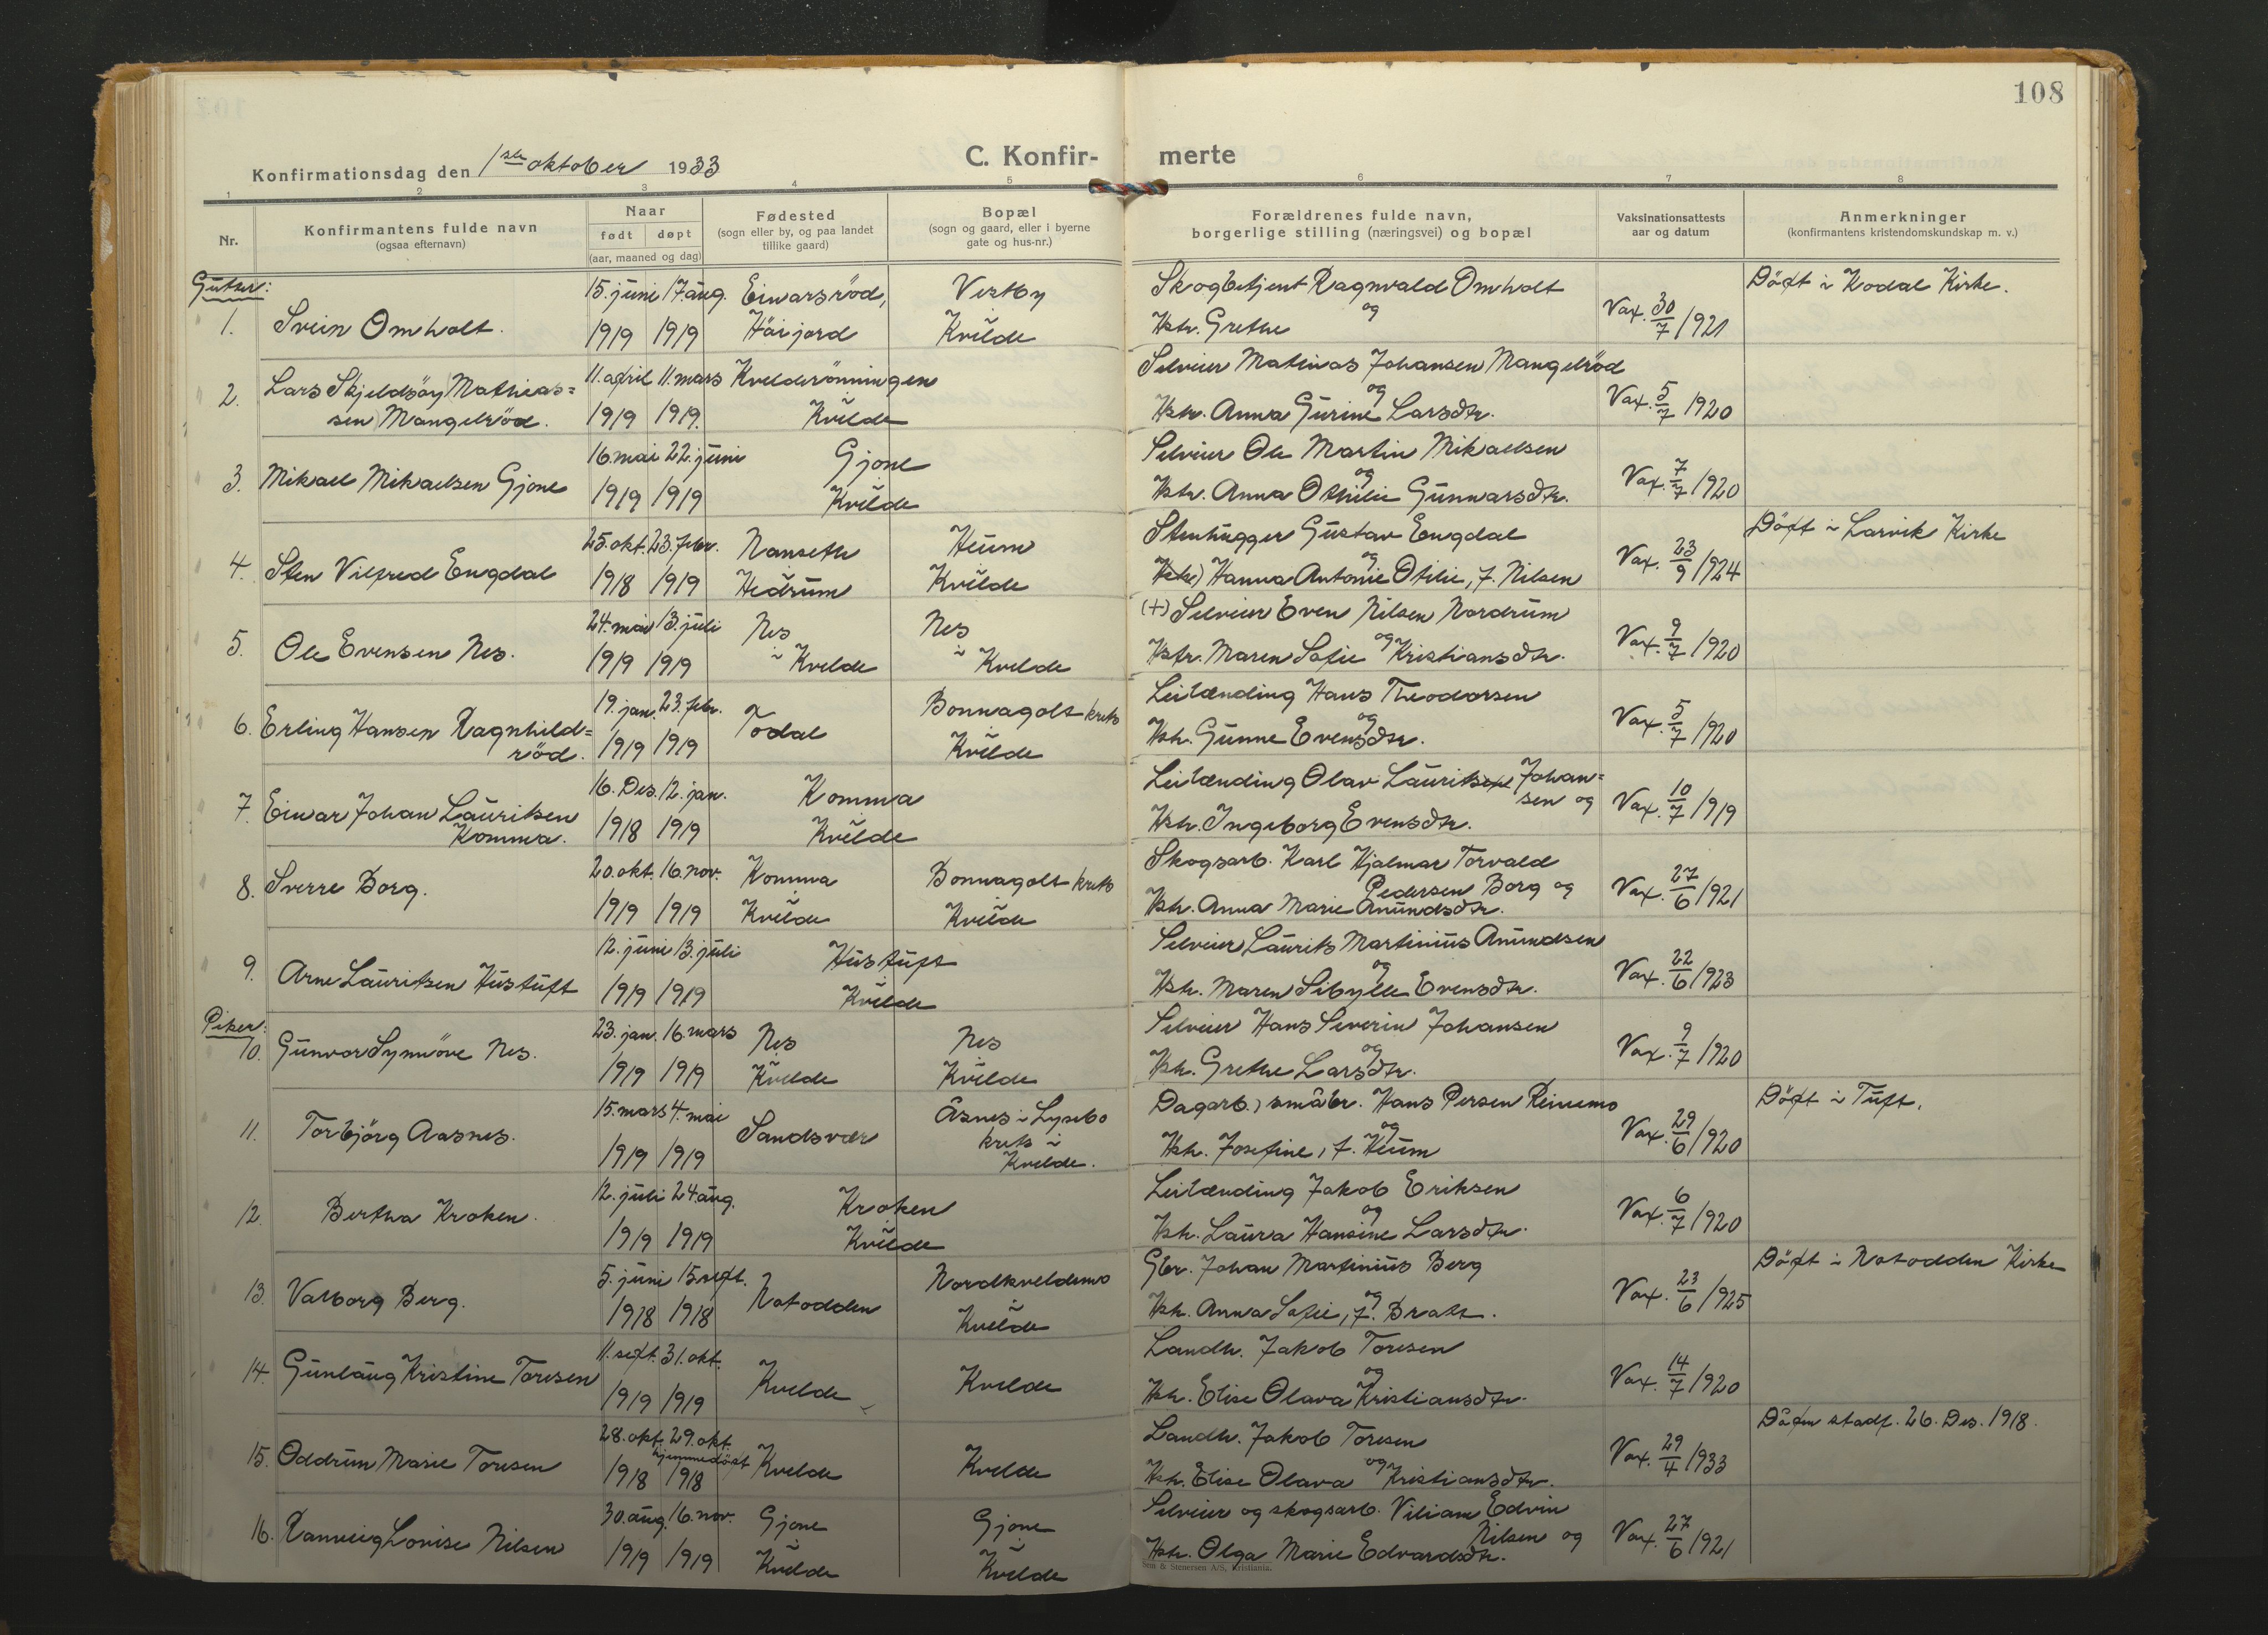 108
C. Konfir- merte
Konfirmationsdag den 1ste oktober 1933
1 2 3 4 5 6 7 8
Nr.
Konfirmantens fulde navn
(ogsaa efternavn)
Naar
født døpt
(aar, maaned og dag)
Fødested
(sogn eller by, og paa landet
tillike gaard)
Bopæl
(sogn og gaard, eller i byerne
gate og hus-nr.)
Forældrenes fulde navn,
borgerlige stilling (næringsvei) og bopæl
Vaksinationsattests
aar og datum
Anmerkninger
(konfirmantens kristendomskundskap m. v.)
Gutter:
15. juni 17. aug. Einarsröd, Vestby Skogbetjent Ragnvald Omholt Döpt i Kodal Kirke.
1. Svein Omholt. 1919 1919 Höijord Kvelde og Hstr. Grethe Vax. 30/7 1921
11. april 11. mars Kvelderönningen Selveier Matinas Johansen Mangelröd
2. Lars Skjeldsöy Mathias=
sen Mangelröd. 1919 1919. Kvelde og Hstr. Anna Gurine Larsdtr. Vax. 5/7 1920
16. mai 22. juni Gjone Selveier Ole Martin Mikaelsen
3. Mikael Mikaelsen Gjone 1919 1919 Kvelde og Hstr. Anna Othilie Gunnarsdtr. Vax. 7/7 1920
25. okt. 23. febr. Nanseth Heum Stenhugger Gustav Engdal Döpt i Larvik Kirke
4. Sten Vilfred Engdal 1918 1919 Hedrum Kvelde og Hstr. Hanna Antonie Otilie, f. Nilsen Vax. 23/9 1924
24. mai 13. juli Nes Nes (+) Selveier Even Nilsen Nordrum
5. Ole Evensen Nes. 1919 1919 i Kvelde i Kvelde og Hstr. Maren Sofie Kristiansdtr. Vax. 9/7 1920
19. jan. 23. febr. Todal Bonnagolt krets Leilænding Hans Theodorsen
6. Erling Hansen Ragnhild=
röd. 1919 1919 Kvelde og Hstr. Gunne Evensdtr. Vax. 5/7 1920
16. Des. 12. jan. Komma Leilænding Olav Lauritsen Johan=
sen og
7. Einar Johan Lauritsen
Komma. 1918 1919 Kvelde Hstr. Ingeborg Evensdtr. Vax. 10/7 1919
20. okt. 16. nov. Komma Bonnagolt krets Skogsarb. Karl Hjalmar Torvald
Pedersen Borg og
8. Sverre Borg. 1919 1919 Kvelde Kvelde Hstr. Anna Marie Anundsdtr. Vax. 27/6 1921
12. juni 13. juli Hustuft Selveier Laurits Martinius Anundsen
9. Arne Lauritsen Hustuft 1919 1919 Kvelde og Hstr. Maren Sibylle Evensdtr. Vax. 22/6 1923
Piker:
23. jan. 16. mars Nes Nes Selveier Hans Severin Johansen
10. Gunvor Synnöve Nes. 1919 1919 Kvelde Kvelde og Hstr. Grethe Larsdtr. Vax. 9/7 1920
15. mars 4. mai Sandsvær Åsnes i Lysebo
krets i
Kvelde. Dagarb., småbr. Hans Persen Reinemo Döpt i Tuft.
11. Torbjörg Aasnes. 1919 1919 og Hstr. Josefine, f. Heum Vax. 29/6 1920
12. juli 24. aug. Kroken Leilænding Jakob Eriksen
12. Bertha Kroken. 1919 1919 Kvelde og Hstr. Laura Hansine Larsdtr. Vax. 6/7 1920
5. juni 15. sept. Notodden Nordkveldemo Gbr. Johan Martinius Berg Döpt i Notodden Kirke
13. Valborg Berg. 1918 1918 Kvelde og Hstr. Anna Sofie, f. Brati. Vax. 23/6 1925
11. sept. 31. okt. Landh. Jakob Toresen
14. Gunlaug Kristine Toresen 1919 1919 Kvelde Kvelde og Hstr. Elise Olava Kristiansdtr. Vax. 14/7 1920
28. okt. 29. okt.
hjemmedöpt Landh. Jakob Toresen Dåpen stadf. 26. Des. 1918.
15. Oddrun Marie Toresen 1918 1918 Kvelde Kvelde og Hstr. Elise Olava Kristiansdtr. Vax. 29/4 1933
30. aug. 16. nov. Gjone Gjone Selveier og skogsarb. Viliam Edvin
Nilsen og
16. Ranveig Lovise Nilsen 1919 1919 Kvelde Kvelde Hstr. Olga Marie Edvardsdtr. Vax. 27/6 1921
Sem & Stenersen A/S, Kristiania.